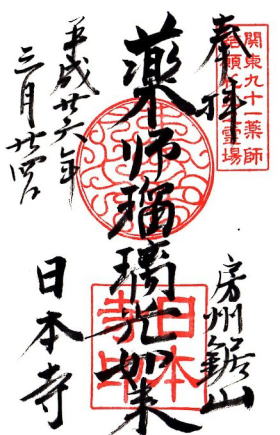 奉拝
関東九十一薬師
発願所霊場
房州鋸山
薬師瑠璃光如来
日本寺印
平成廿六年
三月廿四日
日本寺